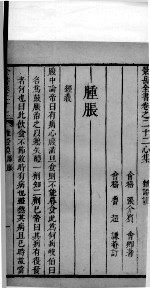 景岳全書卷之二十二心集
會稽 張介賓 會卿著
會稽 魯超 謙菴訂
腫脹
經義
腹中論帝曰有病心腹滿旦食則不能暮食此爲何病岐伯曰
名爲鼓脹治之以雞矢醴一劑知二劑已帝曰其病有復發
者何也曰此飲食不節故時有病也雖然其病且已時故當